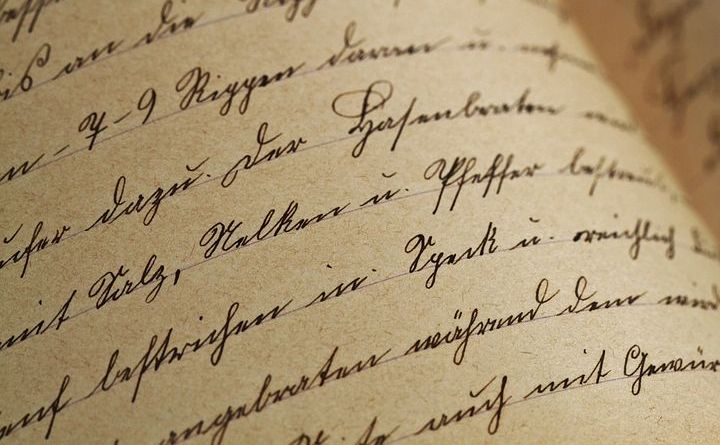 bis an die Ripp
7-9 Rippen daran u.
dazu. Der Hasenbraten
mit Salz, Nelken u. Pfeffer bestreut,
bestrichen m. Speck u. reichlich
angebraten während dem wird
auch mit Gewür